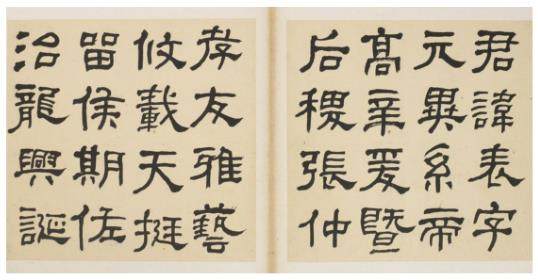 君諱表字
元異系帝
高辛爰暨
后稷張仲
孝友雅藝
攸載天挺
留侯期佐
治龍興誕